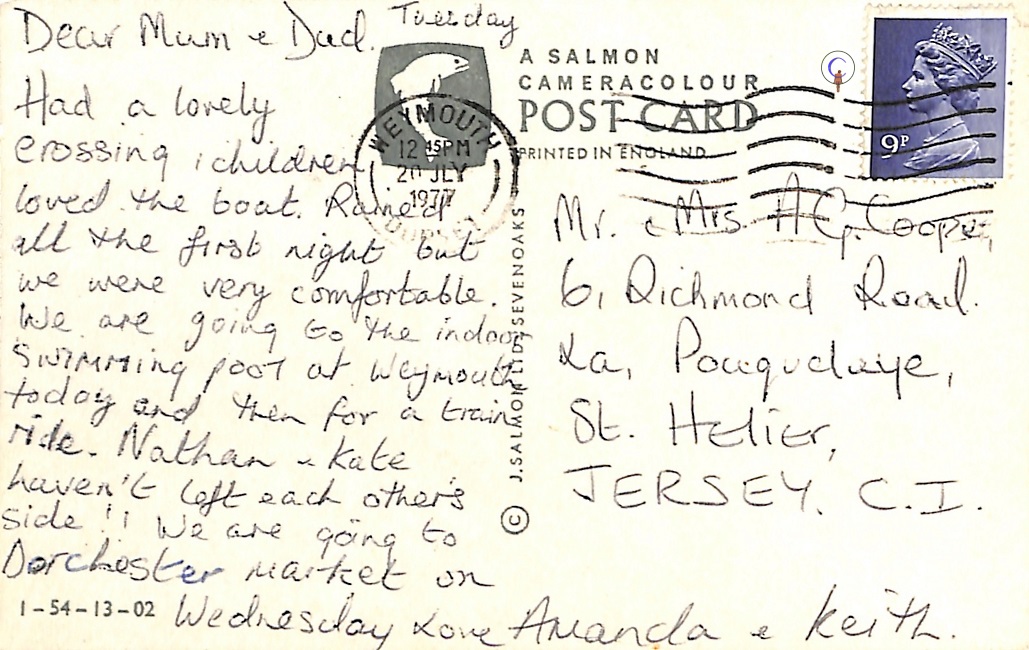 Dear Mum & Dad. Tuesday
Had a lovely
crossing, children
loved the boat. Rained
all the first night but
we were very comfortable.
We are going to the indoor
swimming pool at Weymouth
today and then for a train
ride. Nathan & Kate
haven't left each others
side!! We are going to
Dorchester market on
Wednesday Love Amanda & Keith.
1-54-13-02
A SALMON
CAMERACOLOUR
POST CARD
PRINTED IN ENGLAND
© J. SALMON LTD., SEVENOAKS
WEYMOUTH
12 45PM
20 JLY
1977
9P
Mr. & Mrs. A.G. Cooper,
6, Richmond Road.
La, Pouquelaye,
St. Helier,
JERSEY. C.I.